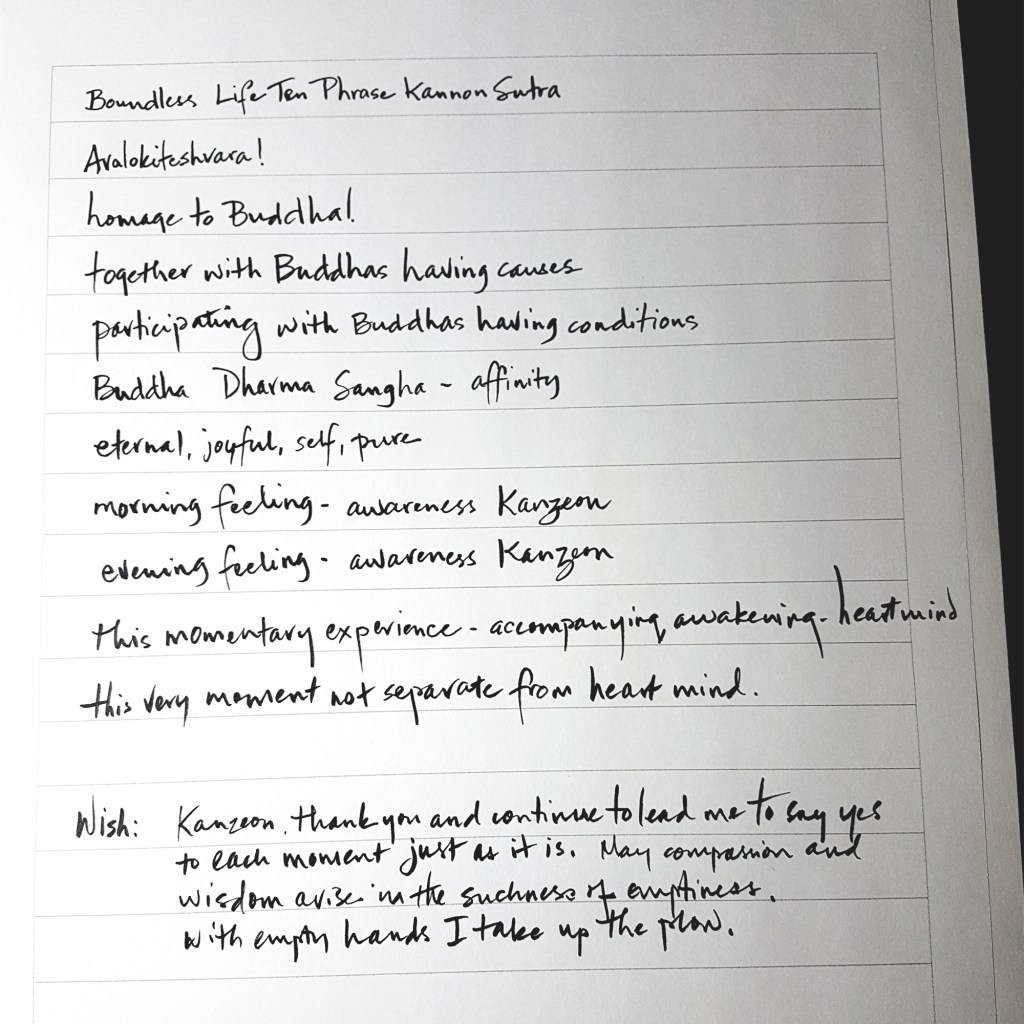 Boundless Life Ten Phrase Kannon Sutra
Avalokiteshvara!
homage to Buddha!
together with Buddhas having causes
participating with Buddhas having conditions
Buddha Dharma Sangha - affinity
eternal, joyful, self, pure
morning feeling - awareness Kanzeon
evening feeling - awareness Kanzeon
this momentary experience - accompanying awakening - heart mind
this very moment not separate from heart mind.
Wish: Kanzeon, thank you and continue to lead me to say yes
to each moment just as it is. May compassion and
wisdom arise in the suchness of emptiness.
With empty hands I take up the plow.